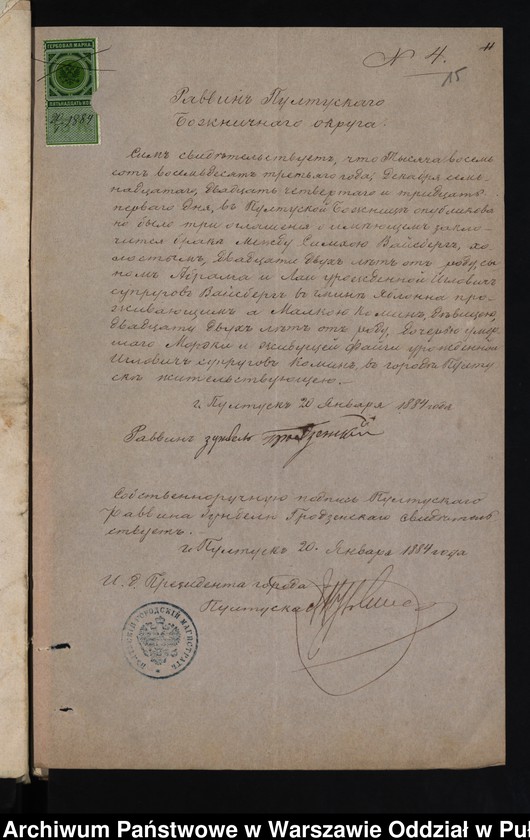 ГЕРБОВАЯ МАРКА
1884
N 4.
15
Раввинъ Пултускаго
Божничнаго округа.
Симъ свидѣтельствуетъ, что Тысяча восемь
сотъ восемьдесятъ третьяго года, Декабря сем-
надцатаго, двадцать четвертаго и тридцать
перваго дня, въ Пултуской Божницѣ опубликова
но было три оглашенія о имѣющемъ заклю-
чится бракѣ между Симхою Вайсбергъ, хо-
лостымъ, двадцати двухъ лѣтъ отъ роду, сы
номъ Абрама и Лаи урожденной
супруговъ Вайсбергъ въ про-
живающимъ а Малкою Коминъ, дѣвицею,
двадцати двухъ лѣтъ отъ роду, дочерью умер
шаго Мордки и живущей Файги урожденной
супруговъ Коминъ, въ городѣ Пулту
скѣ жительствующею.
г. Пултускъ 20 Января 1884 года
Раввинъ
Собственноручную подпись Пултускаго
Раввина Гродзенскаго свидѣтель
ствуетъ.
г. Пултускъ 20. Января 1884 года
И. д. Президента города
Пултуска
Archiwum Państwowe w Warszawie Oddział w Pu